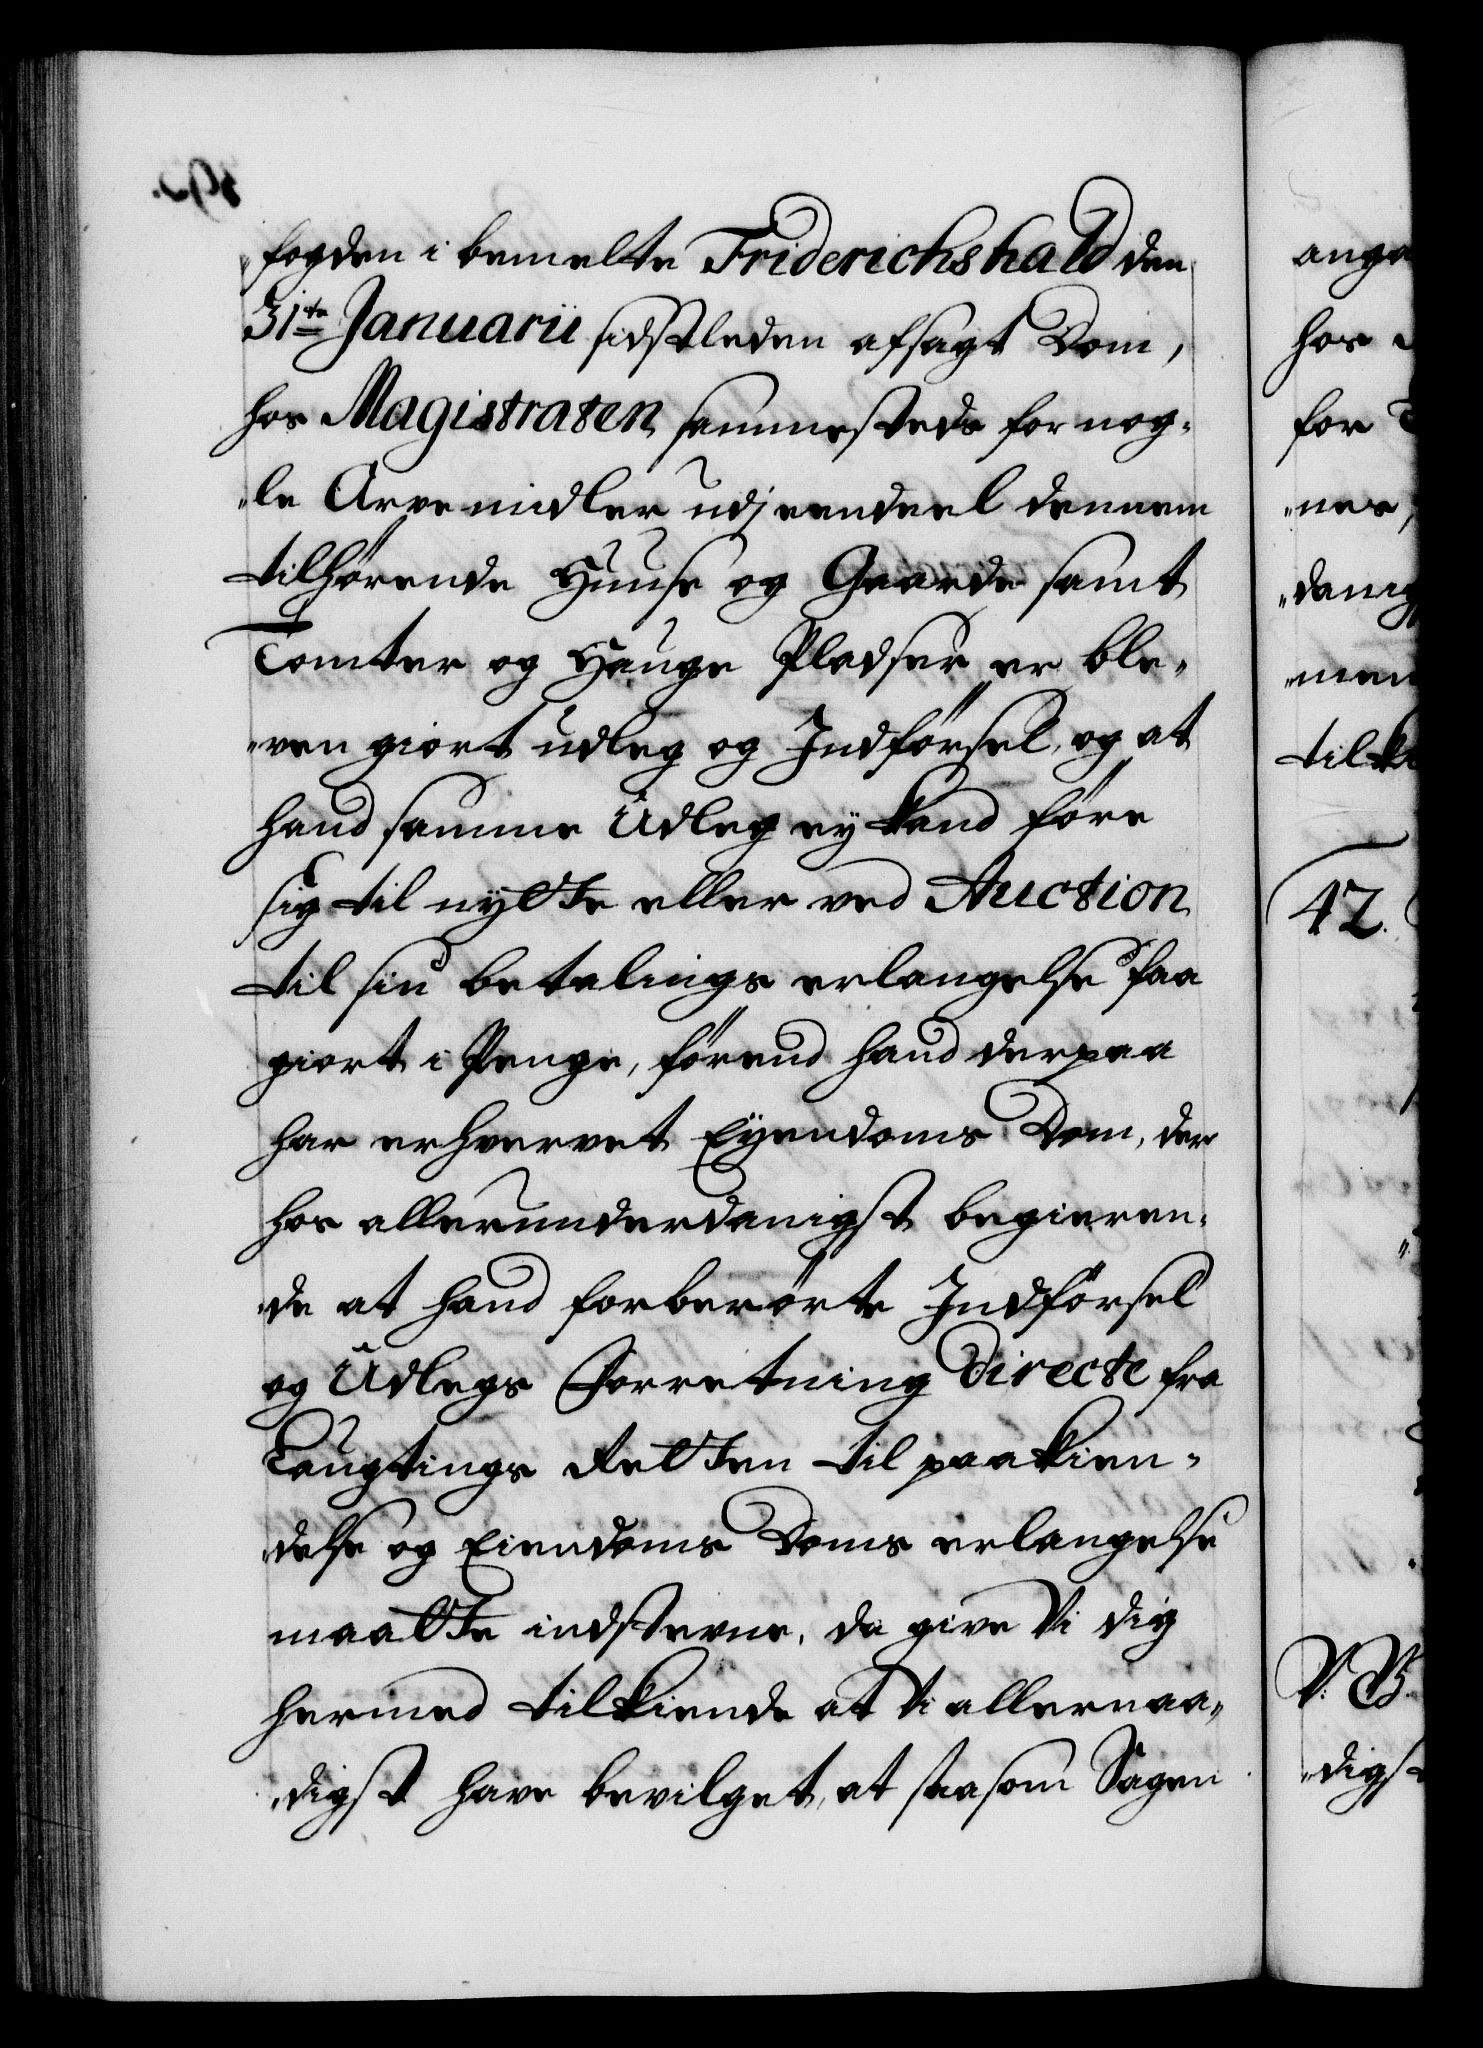 „fogden i bemelte Friderichshald den
31te Januarii sidstleden afsagt Dom,
hos Magistraten sammesteds for nog-
„le Arve midler udj eendeel dennem
tilhørende Huuse og Gaarde samt
Tomter og Hauge Pladser er ble„
„ven giort udleg og Indførsel, og at
hand samme Udleg ey kand føre
sig til nytte eller ved Auction
til sin betalings erlangelse faa
giort i Penge, førend hand derpaa
har erhvervet Eyendoms Dom, der
hos allerunderdanigst begieren-
de at hand forberørte Indførsel
og Udlegs Forretning directe fra
Laugtings Retten til paakien-
delse og Eiendoms Doms erlangelse
maatte indstevne, da give Vi dig
hermed tilkiende at Vi allernaa„
„digst have bevilget, at saasom Sagen
hos
for
„nes,
42.
V. B.
„digst